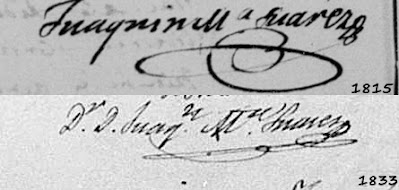 Juaquin M.a Suarez
1815
Dr. D. Juaqn. Ma. Suarez
1833